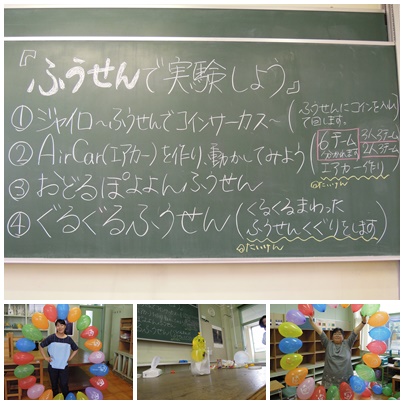 『ふうせんで実験しよう』
①ジャイロ～ふうせんでコインサーカス～(ふうせんにコインを入れて回します。
②AirCar(エアカー)を作り、動かしてみよう(エアカー作り)
6チーム
分かれます
3人3チーム
2人3チーム
◎たいけん
③おどるぽよよんふうせん
④ぐるぐるふうせん(くるくるまわった
ふうせんくぐりをします)
◎たいけん